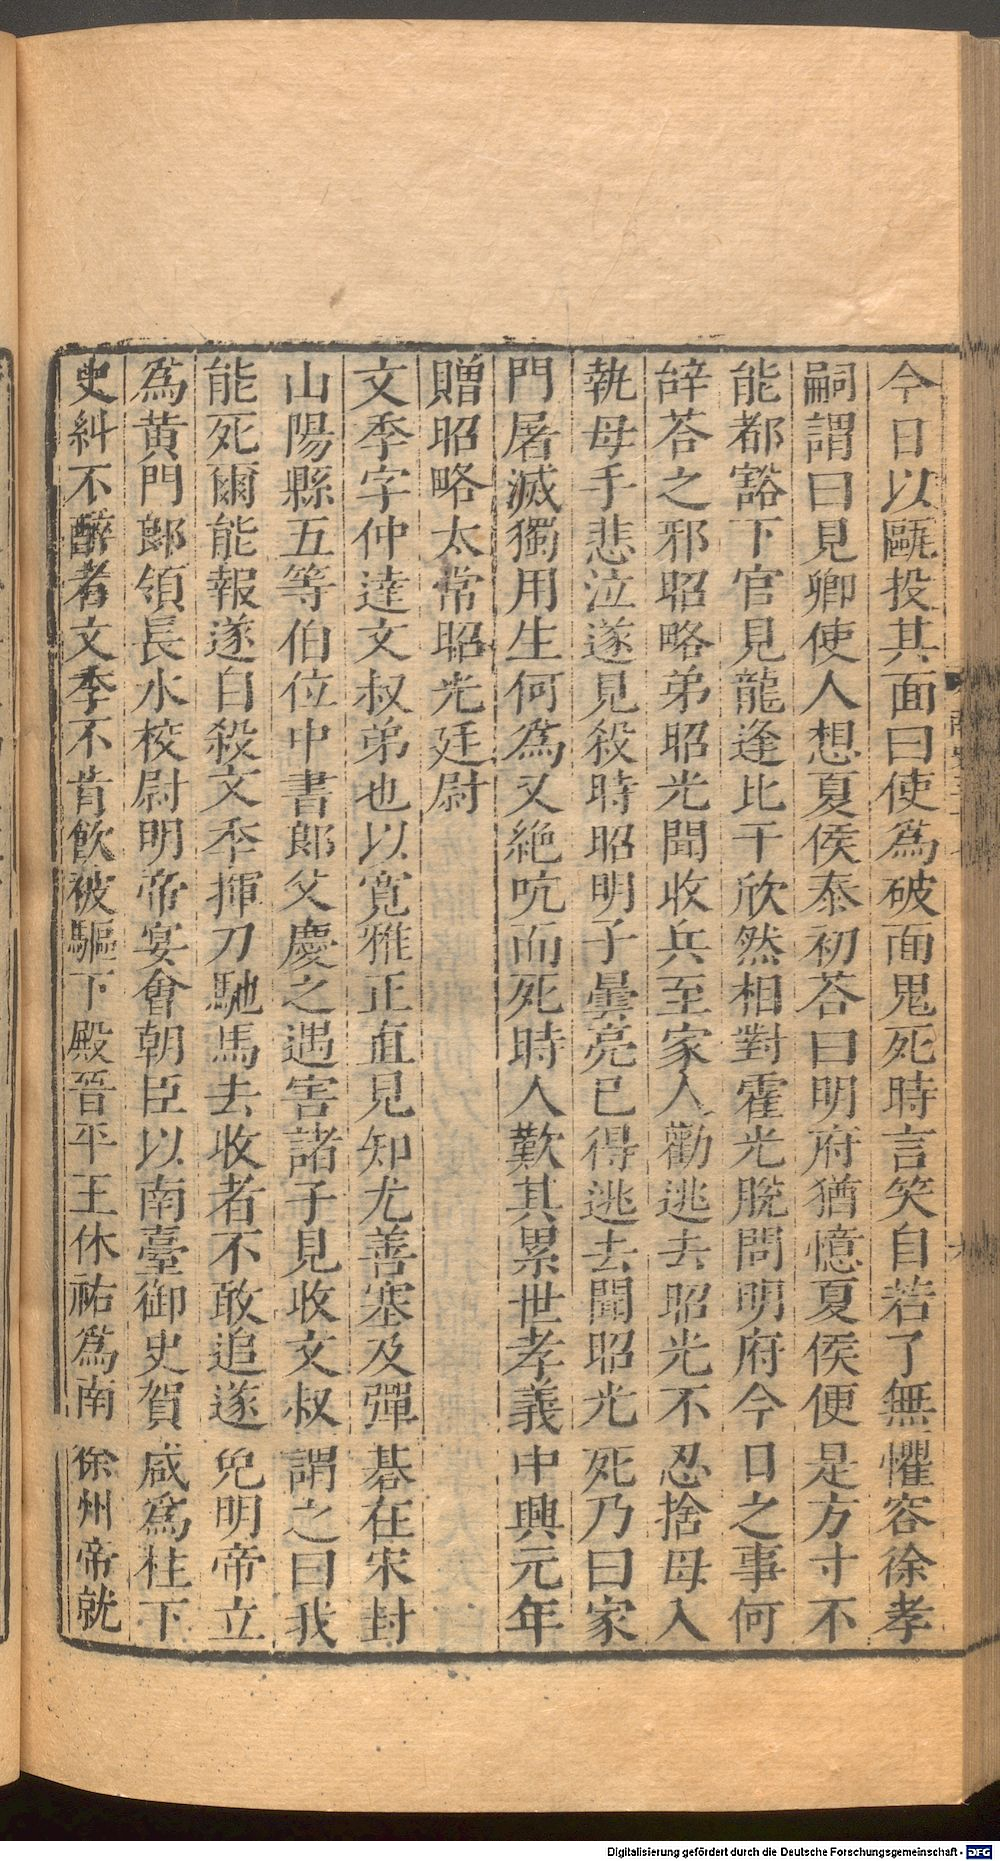 今日以甌投其面曰使爲破面鬼死時言笑自若了無懼容徐孝
嗣謂曰見卿使人想夏侯泰初荅曰明府猶憶夏侯便是方寸不
能都豁下官見龍逢比干欣然相對霍光脫問明府今日之事何
辝荅之邪昭略弟昭光聞收兵至家人勸逃去昭光不忍捨母入
執母手悲泣遂見殺時昭明子曇亮已得逃去聞昭光死乃曰家
門屠滅獨用生何爲又絶吭而死時人歎其累世孝義中興元年
贈昭略太常昭光廷尉
文季字仲達文叔弟也以寬雅正直見知尤善塞及彈棊在宋封
山陽縣五等伯位中書郎父慶之遇害諸子見收文叔謂之曰我
能死爾能報遂自殺文季揮刀馳馬去收者不敢追遂免明帝立
爲黃門郎領長水校尉明帝宴會朝臣以南臺御史賀咸爲柱下
史糾不醉者文季不肯飲被驅下殿晉平王休祐爲南徐州帝就
Digitalisierung gefördert durch die Deutsche Forschungsgemeinschaft - DFG